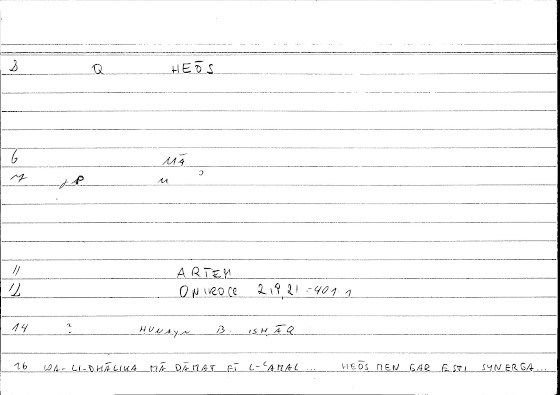 3 Q HEŌS
6 Mā
7 M
11 ARTEM
12 ONIROCR 219,21-401 1
14 ? HUNAYN B. ISḤĀQ
16 WA-LI-DHĀLIKA MĀ DĀMAT FĪ L-ʿAMAL ... HEŌS MEN GAR ESTI SYNERGA...